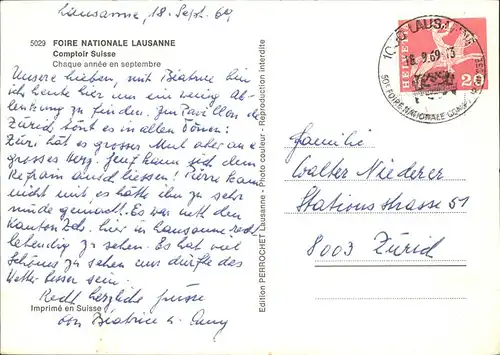 Lausanne, 18. Sept. 69
5029 FOIRE NATIONALE LAUSANNE
Comptoir Suisse
Chaque année en septembre
Unsere lieben, mit Béatrice bin
ich heute hier um ein wenig Ab-
lenkung zu finden. Im Pavillon des
Zürich tönt es in allen Tönen:
Züri hät es grosses Mul aber au es
grosses Herz. Jenf kann sich dem
Refrain anschliessen! Pierre kam
nicht mit es hätte ihn zu sehr
müde gemacht. Es war nett den
Kanton Zch. hier in Lausanne recht
lebendig zu sehen. Es hat viel
Schönes zu sehen nur dürfte das
Wetter besser sein.
Recht herzliche Grüsse
von Béatrice u.
Imprimé en Suisse
Edition PERROCHET Lausanne - Photo couleur - Reproduction interdite
1000 LAUSANNE
18.9.69-13
50e FOIRE NATIONALE COMPTOIR
HELVETIA
20
Familie
Walter Niederer
Stationsstrasse 51
8003 Zürich